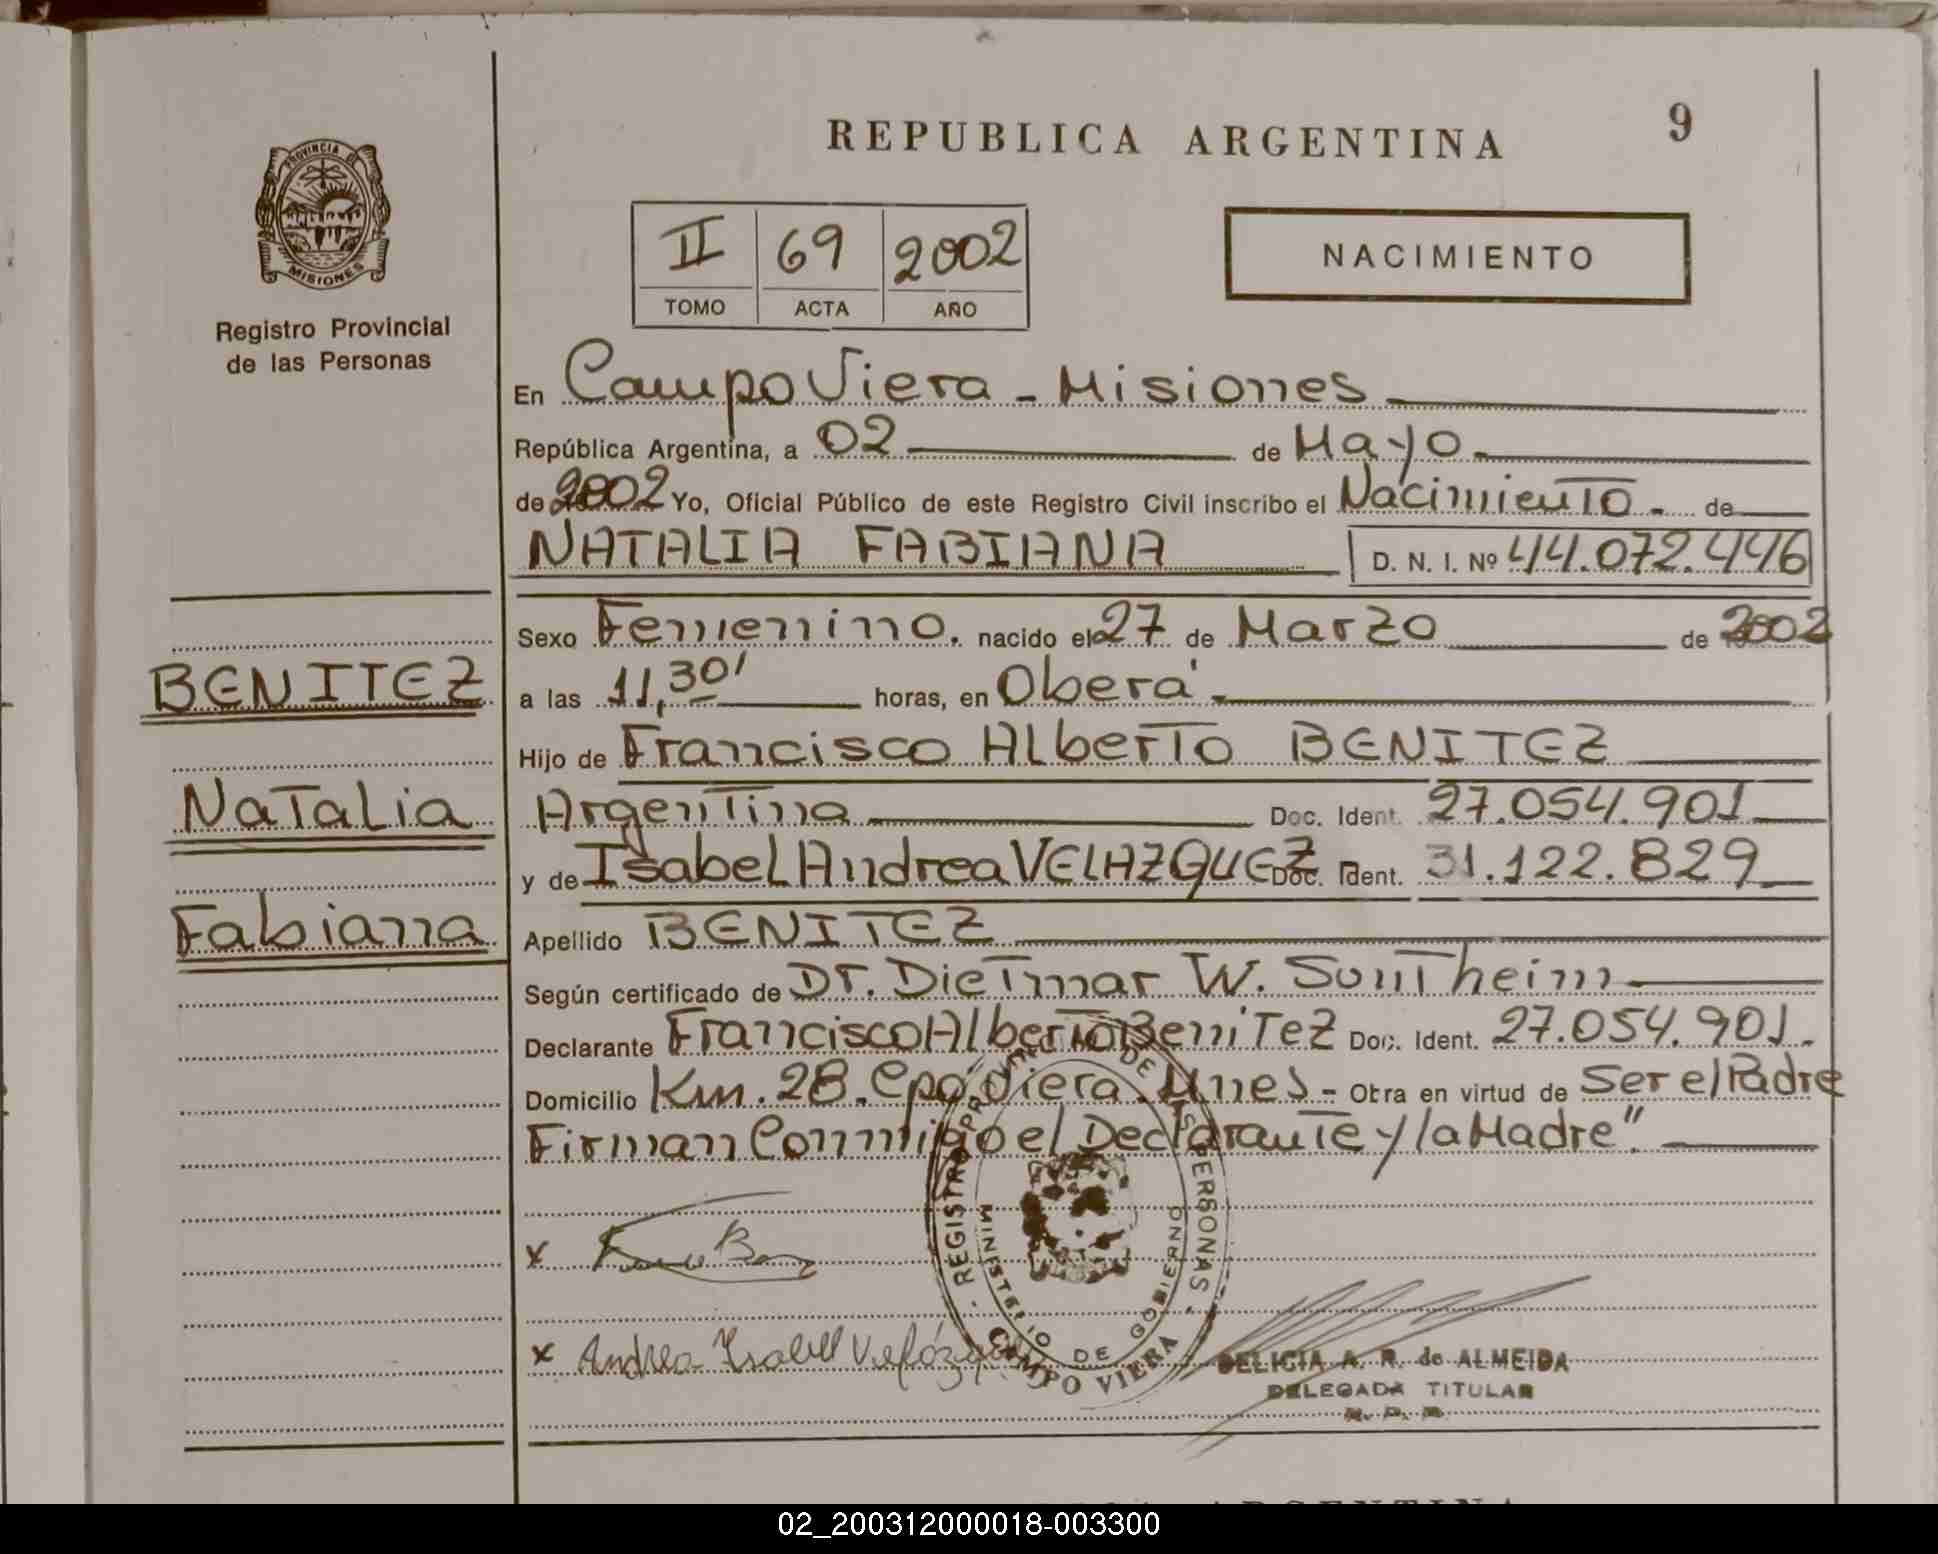 REPUBLICA ARGENTINA
9
PROVINCIA DE
MISIONES
Registro Provincial
de las Personas
II 69 2002
TOMO ACTA AÑO
NACIMIENTO
En Campo Viera - Misiones
República Argentina, a 02 de Mayo
de 2002 Yo, Oficial Público de este Registro Civil inscribo el Nacimiento - de
NATALIA FABIANA D. N. I. Nº 44.072.446
Sexo Femenino. nacido el 27 de Marzo de 2002
BENITEZ
a las 11,30' horas, en Oberá -
Hijo de Francisco Alberto BENITEZ
Natalia
Argentina Doc. Ident. 27.054.901
y de Isabel Andrea VELAZQUEZ Doc. Ident. 31.122.829
Fabiana
Apellido BENITEZ
Según certificado de Dr. Dietmar W. Sontheim
Declarante Francisco Alberto Benitez Doc. Ident. 27.054.901.
Domicilio Km. 28. Cpo. Viera. Mnes - Obra en virtud de Ser el Padre
Firman Conmigo el Declarante y la Madre".
REGISTRO PROVINCIAL DE LAS PERSONAS
MINISTERIO DE GOBIERNO
CAMPO VIERA
x
x Andrea Isabel Velázquez
DELICIA A. R. de ALMEIDA
DELEGADA TITULAR
R. P. P.
REPUBLICA ARGENTINA
02_200312000018-003300